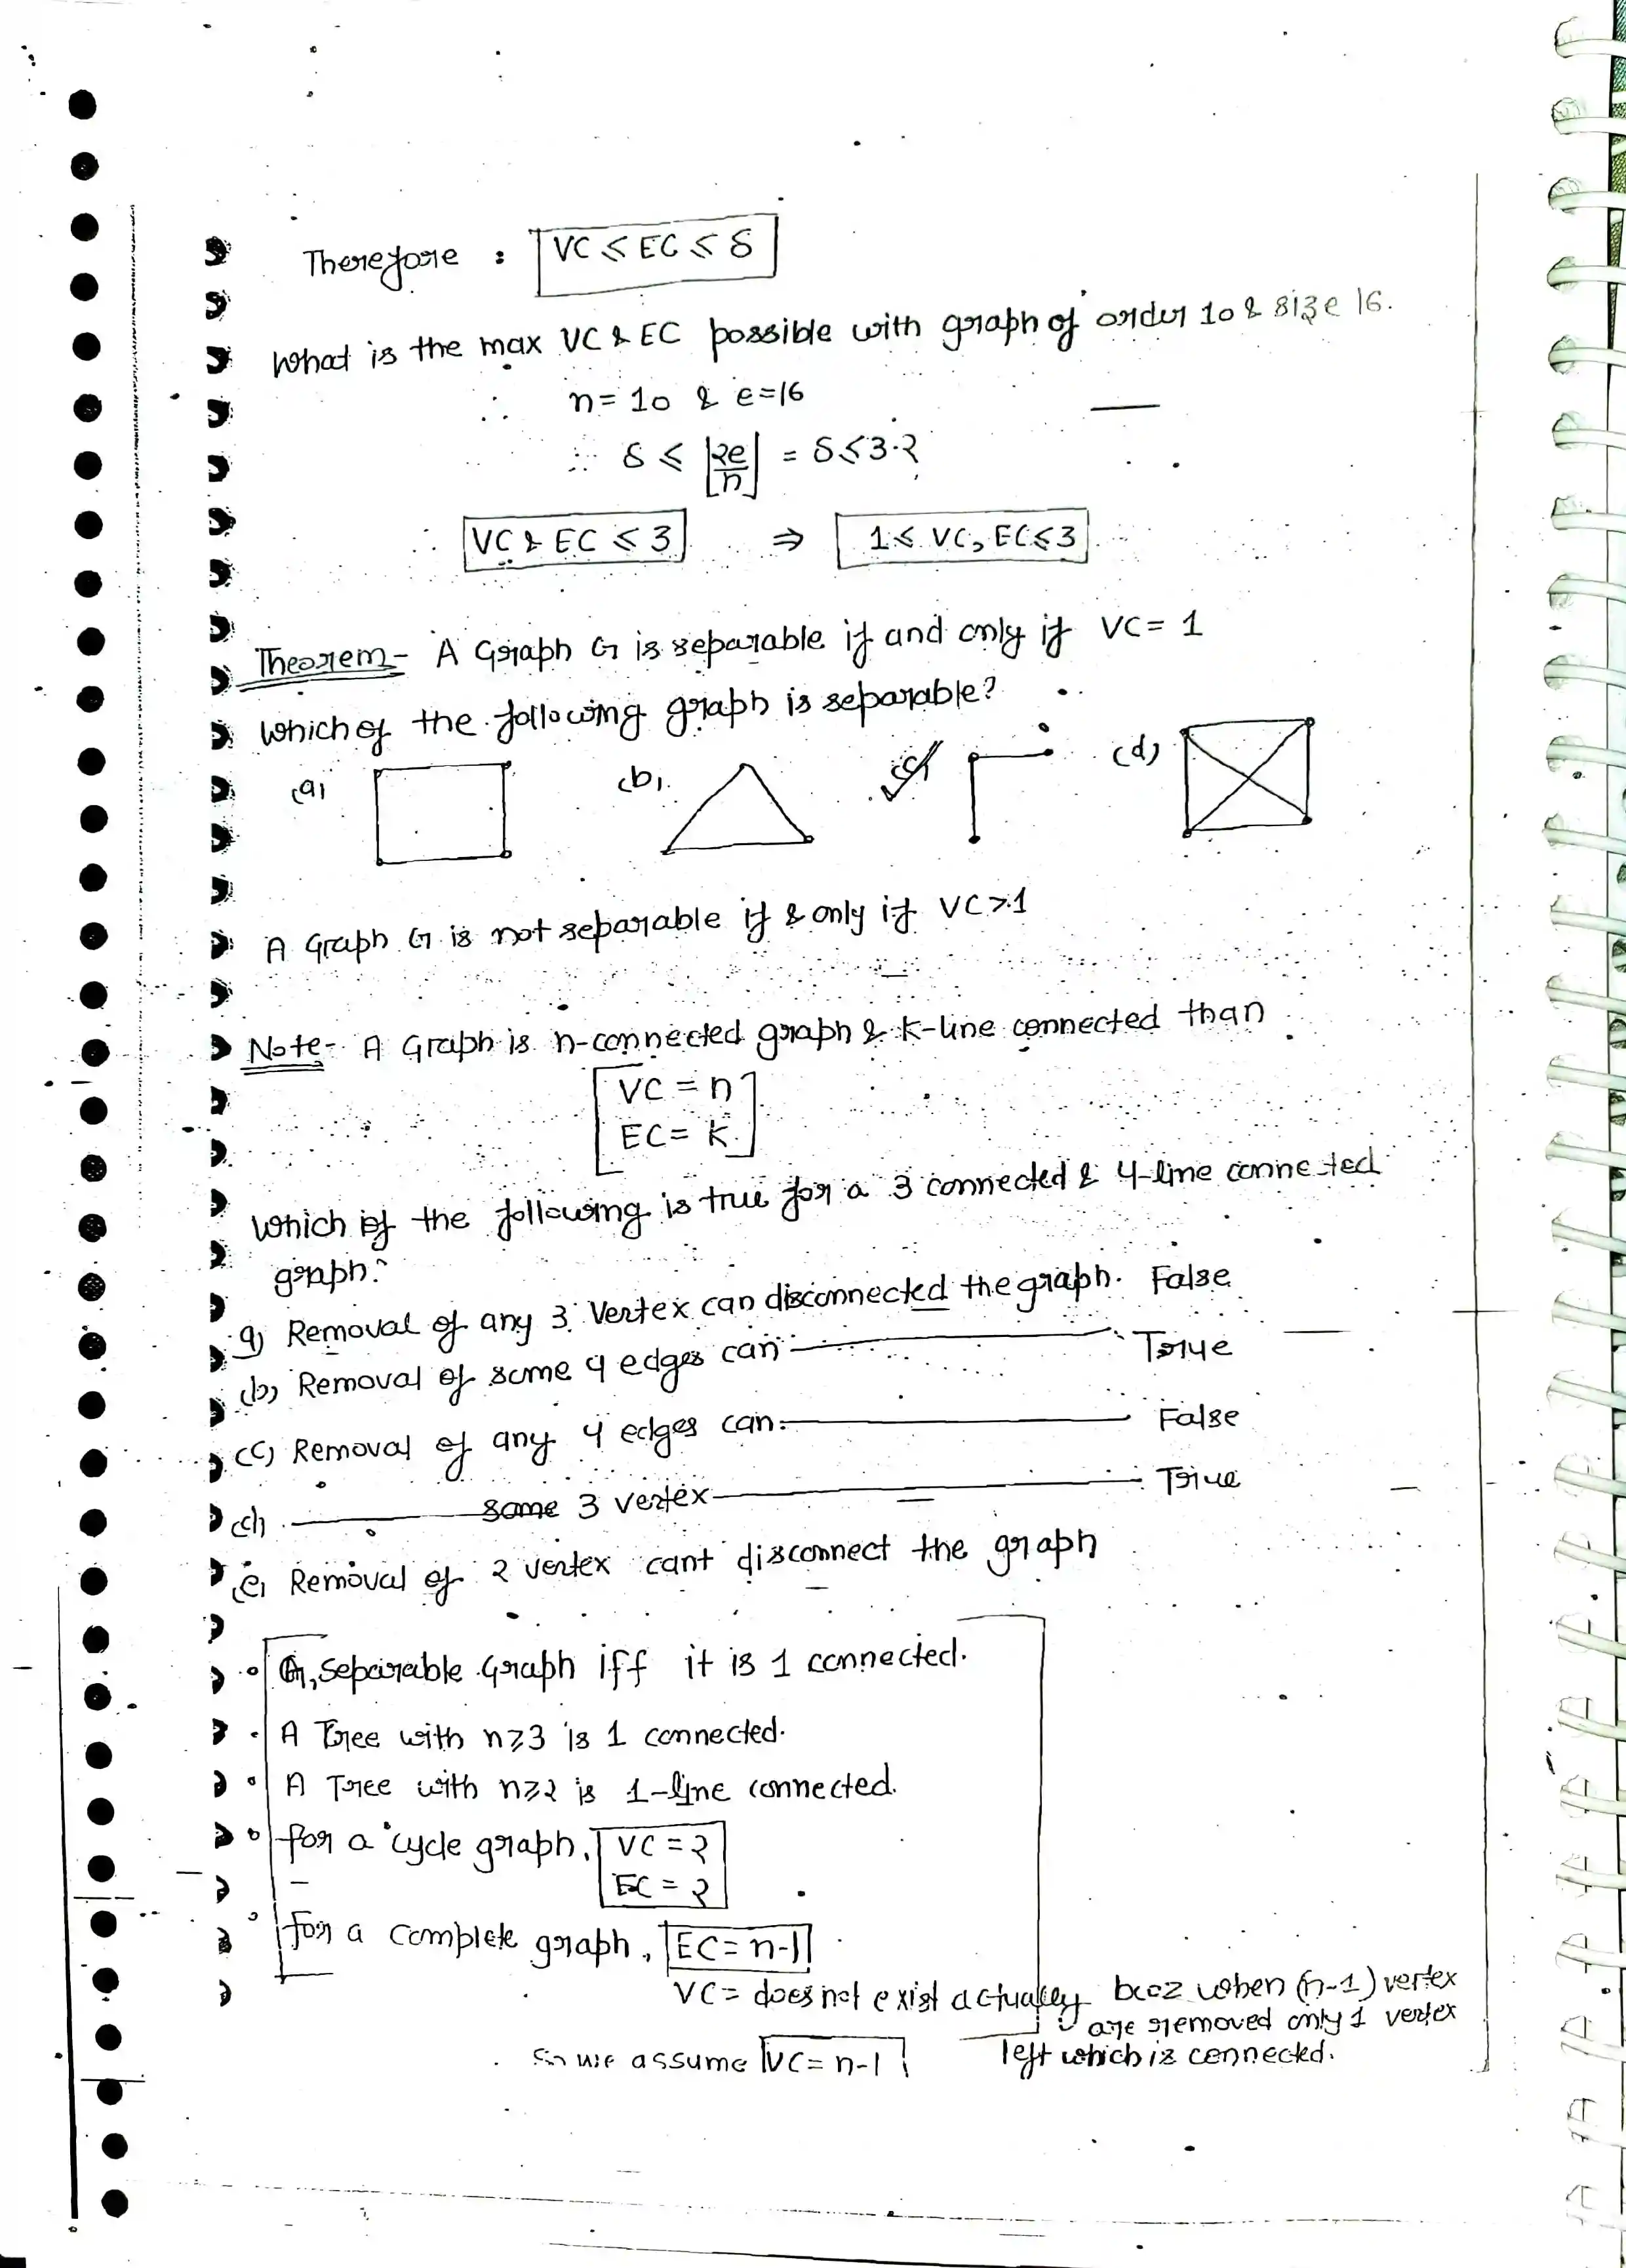 Therefore : VC ≤ EC ≤ δ
What is the max VC & EC possible with graph of order 10 & size 16.
∴ n = 10 & e = 16
∴ δ ≤ ⌊2e/n⌋ = δ ≤ 3.2
∴ VC & EC ≤ 3 ⇒ 1 ≤ VC, EC ≤ 3
Theorem - A Graph G is separable if and only if VC = 1
Which of the following graph is separable?
(a) (b) (c) (d)
A Graph G is not separable if & only if VC > 1
Note - A Graph is n-connected graph & k-line connected than
VC = n
EC = k
Which of the following is true for a 3 connected & 4-line connected
graph?
a) Removal of any 3 Vertex can disconnected the graph. False
(b) Removal of some 4 edges can True
(c) Removal of any 4 edges can False
(d) some 3 vertex True
(e) Removal of 2 vertex cant disconnect the graph
G, Separable Graph iff it is 1 connected.
A Tree with n ≥ 3 is 1 connected.
A Tree with n ≥ 2 is 1-line connected.
for a cycle graph, VC = 2
EC = 2
for a complete graph, EC = n-1
VC = does not exist actually bcoz when (n-1) vertex
are removed only 1 vertex
so we assume VC = n-1 left which is connected.